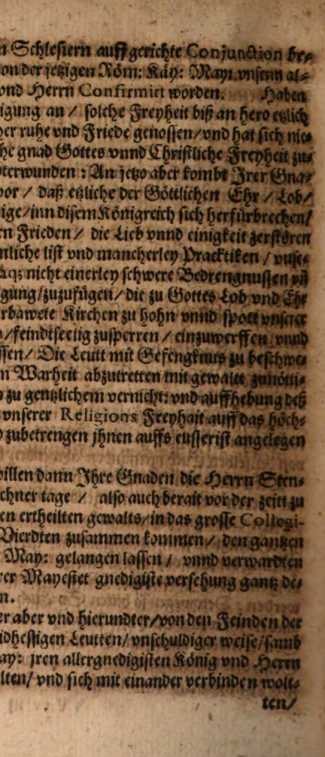 n Schlesiern auffgerichte Conjunction be-
on der jetzigen Röm: Käy: May: vnsern al-
ond Herrn Confirmirt worden. Haben
igung an / solche Freyheit biß an hero etzlich
her ruhe vnd Friede genossen/ vnd hat sich nie-
he gnad Gottes vnnd Christliche Freyheit zu-
terwunden: An jetzo aber kombt Jrer Gna-
vor / daß etzliche der Göttlichen Ehr / Lob/
ige/ inn disem Königreich sich herfürbrechen/
rn Frieden / die Lieb vnnd einigkeit zerstören
nliche list vnd mancherley Practiken / vnse-
nicht einerley schwere Bedrengnussen
gung/ zuzufügen/ die zu Gottes Lob vnd Ehr
rbawete Kirchen zu hohn vnnd spott vnserer
/ feindtseelig zusperren / einzuwerffen / vnnd
ssen/ Die Leutt mit Gefengknus zu beschwe-
n Warheit abzutretten mit gewalt zunöti-
zu gentzlichem vernicht: vnd auffhebung deß
vnserer Religions Freyhait auff das höch-
zubetrengen jhnen auffs eusserist angelegen
willen dann Jhre Gnaden die Herrn Sten-
chner tage / also auch berait vor der zeitt zu
en ertheilten gewalts/ in das grosse Collegi-
Vierdten zusammen kommen/ den gantzen
May: gelangen lassen / vnnd verwardten
rer Mayestet gnedigiste versehung gantz de-
n.
er aber vnd hierundter/ von den Feinden der
idhessigen Leutten/ vnschuldiger weise/ samb
ay: jren allergnedigisten König vnd Herrn
lten/ vnd sich mit einander verbinden wolt-
ten/